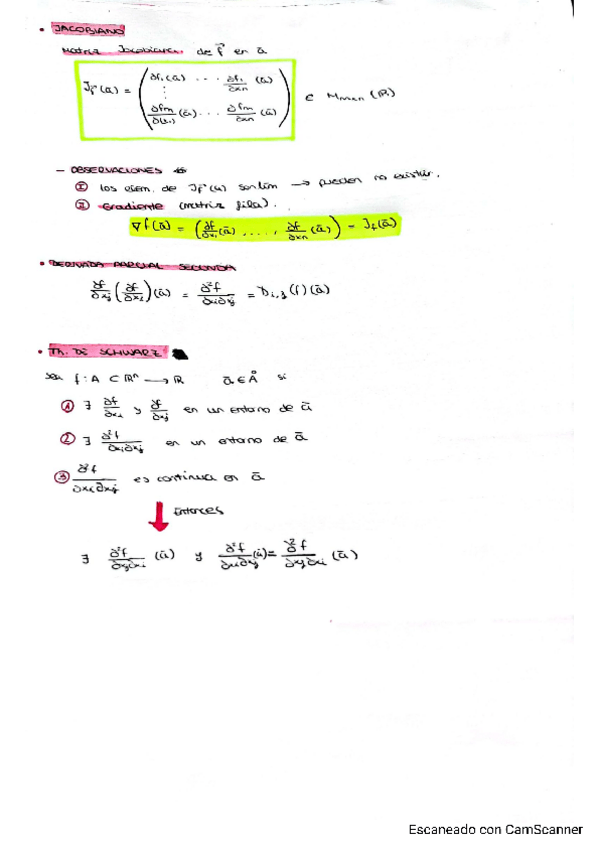 • JACOBIANO
Matriz Jacobiana de f⃗ en ā
J_f⃗ (ā) = ( ∂f₁(ā) · · · ∂f₁/∂xn (ā)
⋮
∂fm/∂(x₁) (ā) · · · ∂fm/∂xn (ā) ) ∈ M mxn (ℝ)
– OBSERVACIONES
① Los elem. de J_f⃗ (ā) son lím → pueden no existir.
② Gradiente (matriz fila).
∇f(ā) = ( ∂f/∂x₁ (ā) , . . . . , ∂f/∂xn (ā) ) = J_f(ā)
• DERIVADA PARCIAL SEGUNDA
∂f/∂xj ( ∂f/∂xi ) (ā) = ∂²f/∂xi∂xj = D i,j (f)(ā)
• TH. DE SCHWARZ
Sea f : A ⊂ ℝⁿ → ℝ ā ∈ Å si
① ∃ ∂f/∂xi y ∂f/∂xj en un entorno de ā
② ∃ ∂²f/∂xi∂xj en un entorno de ā
③ ∂²f/∂xi∂xj es continua en ā
Entonces
∃ ∂²f/∂xj∂xi (ā) y ∂²f/∂xi∂xj (ā) = ∂²f/∂xj∂xi (ā)
Escaneado con CamScanner